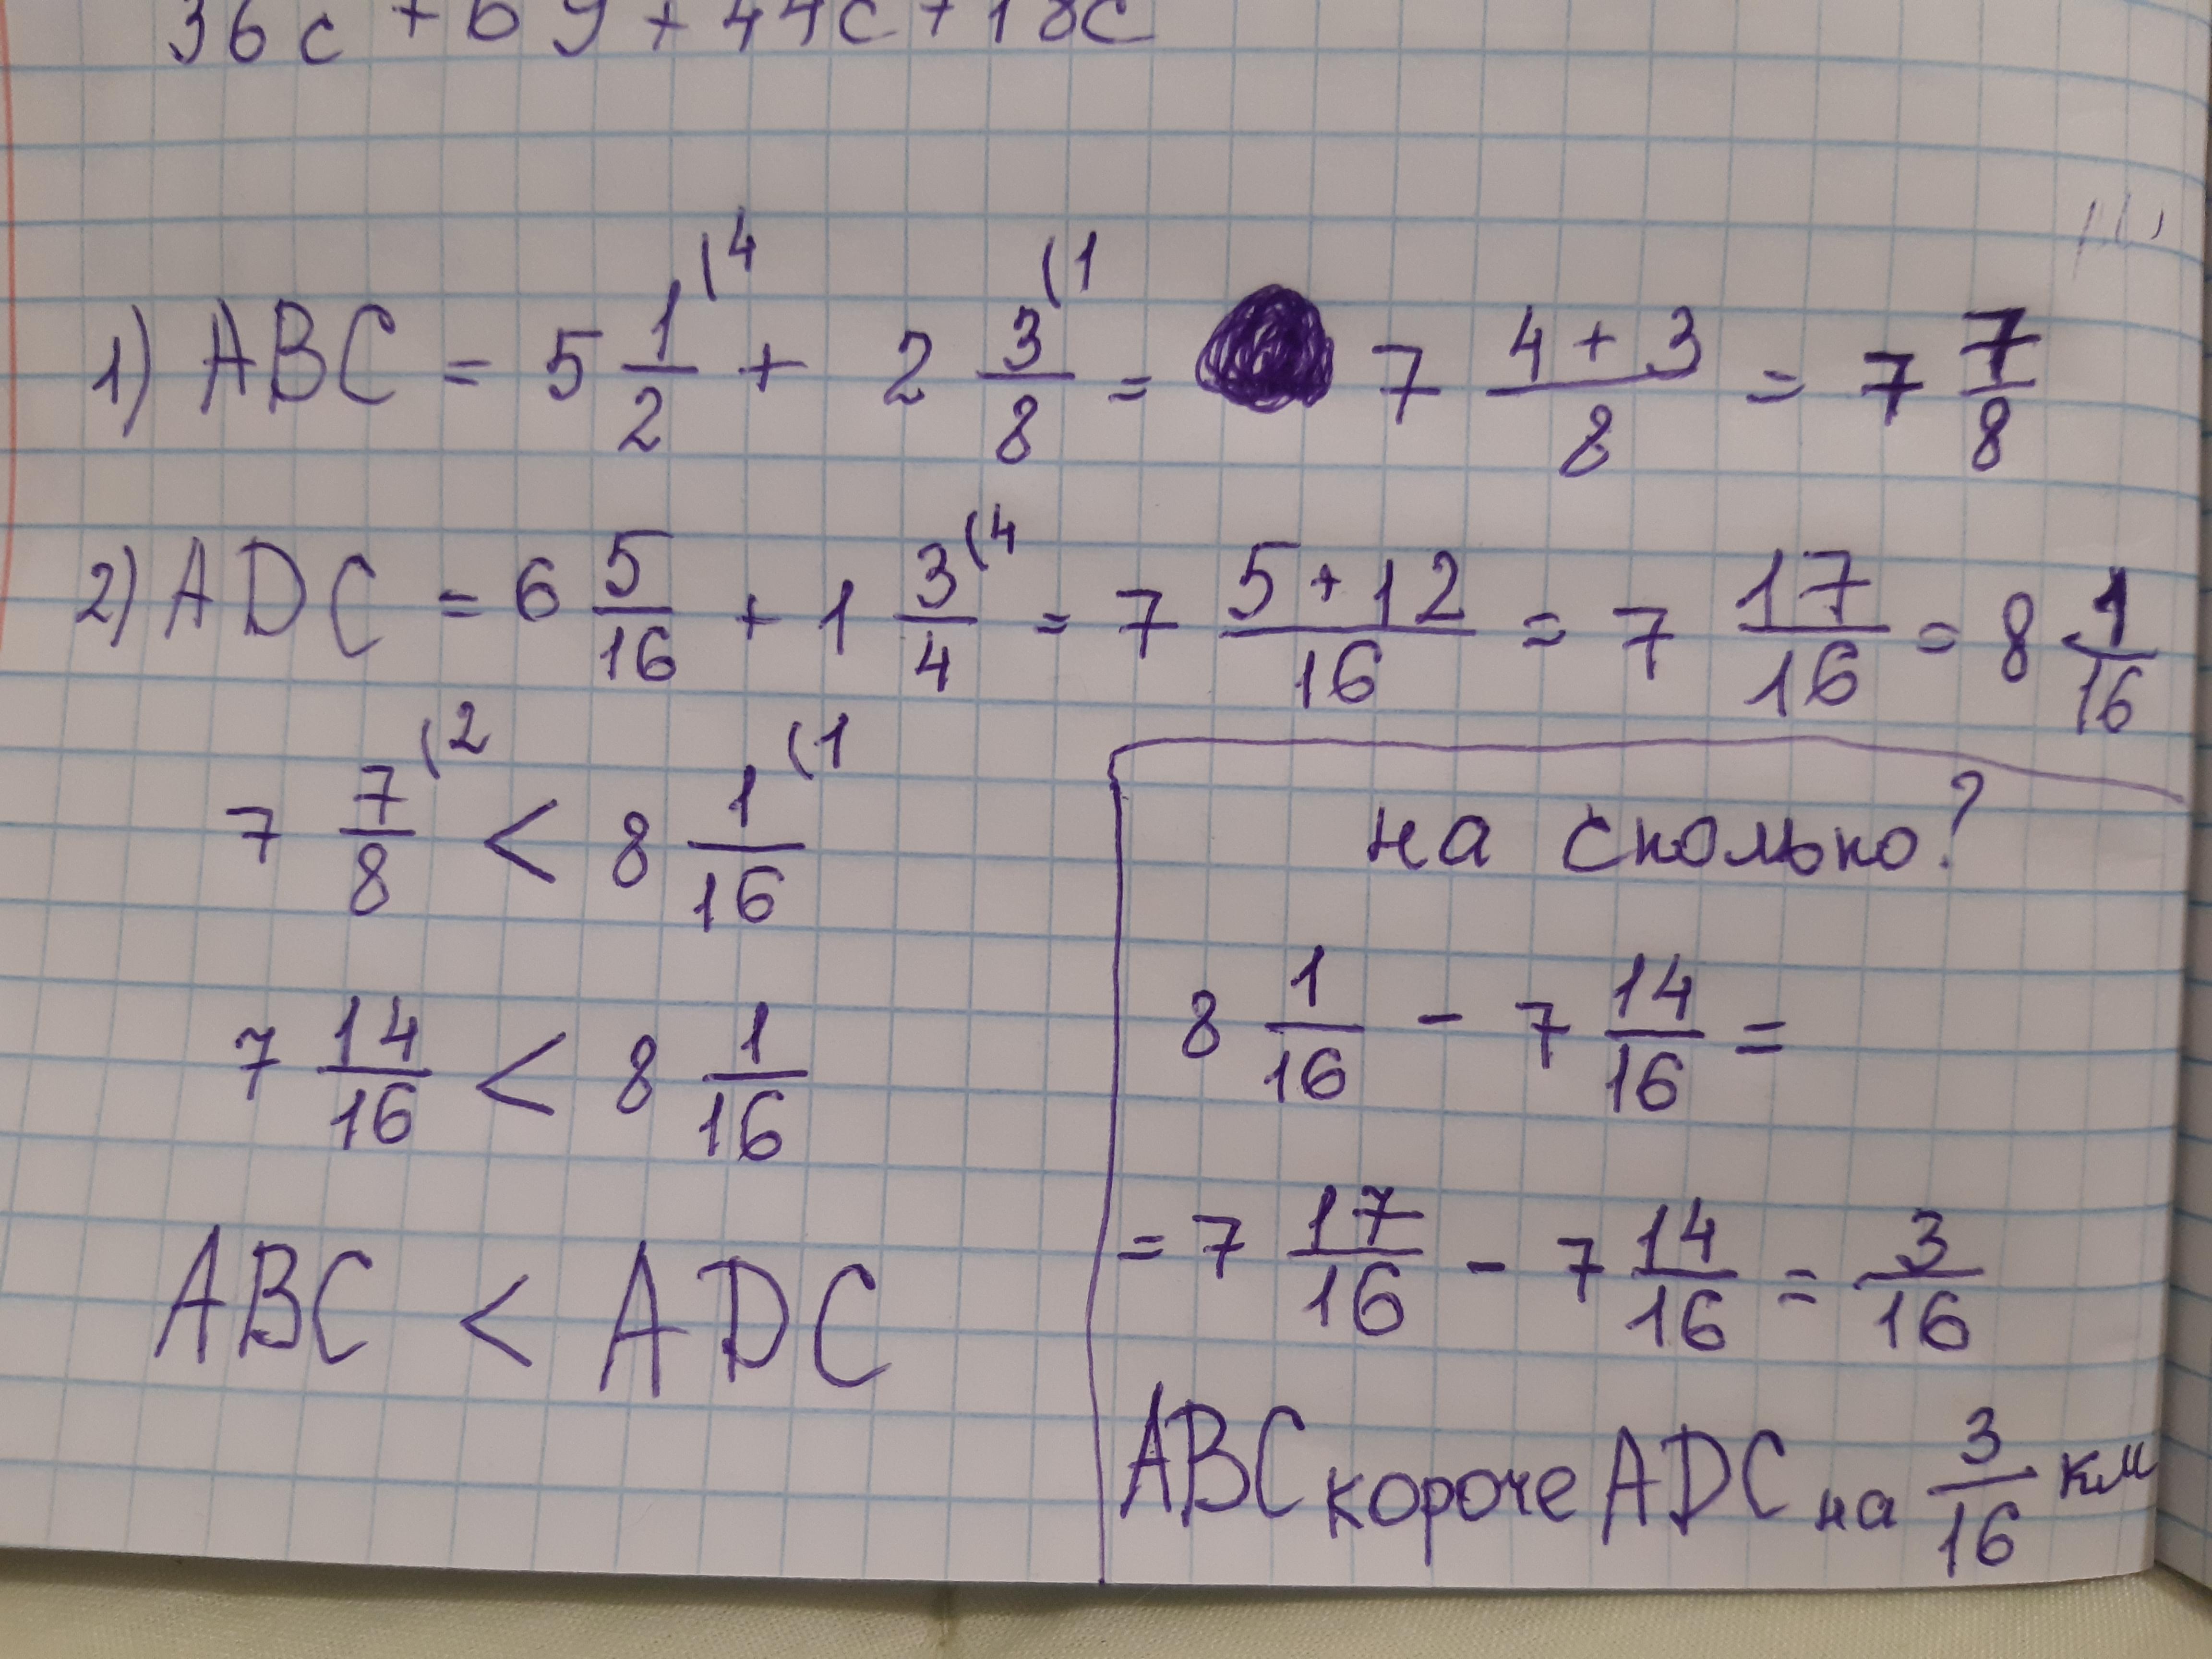 1) ABC = 5 1/2 (4 + 2 3/8 (1 = 7 (4+3)/8 = 7 7/8
2) ADC = 6 5/16 + 1 3/4 (4 = 7 (5+12)/16 = 7 17/16 = 8 1/16
7 7/8 (2 < 8 1/16 (1
7 14/16 < 8 1/16
ABC < ADC
на сколько?
8 1/16 - 7 14/16 =
= 7 17/16 - 7 14/16 = 3/16
ABC короче ADC на 3/16 км